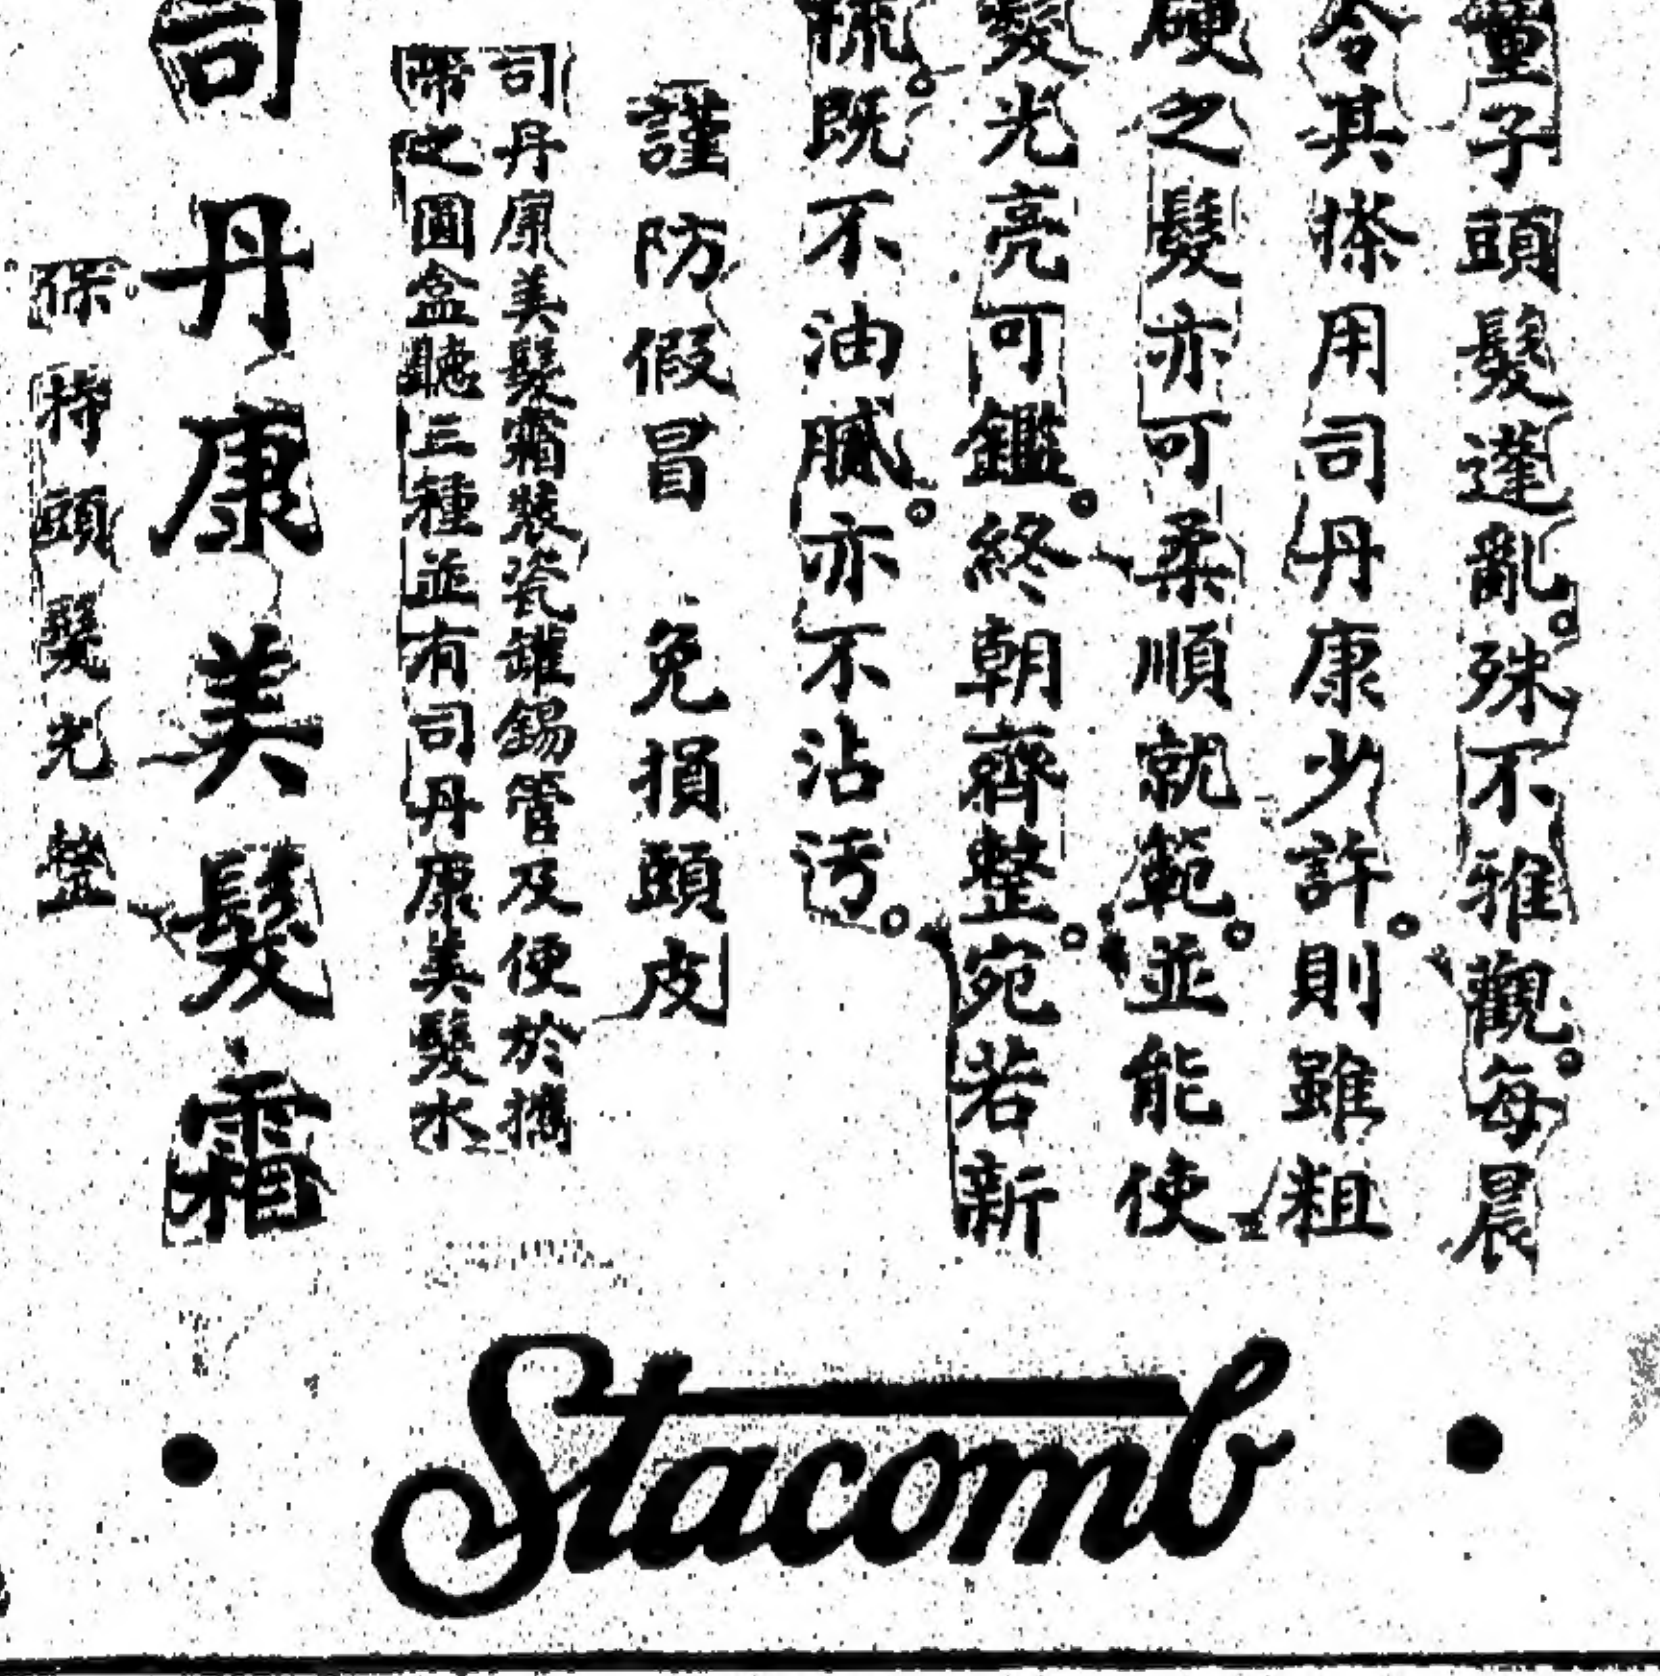 童子頭髮蓬亂。殊不雅觀。每晨
令其搽用司丹康少許。則雖粗
硬之髮亦可柔順就範。並能使
髮光亮可鑑。終朝齊整。宛若新
梳。既不油膩。亦不沾污。
謹防假冒 免損頭皮
司丹康美髮霜裝瓷罐錫管及便於攜
帶之圓盒聽三種並有司丹康美髮水
司丹康美髮霜
保持頭髮光瑩
Stacomb